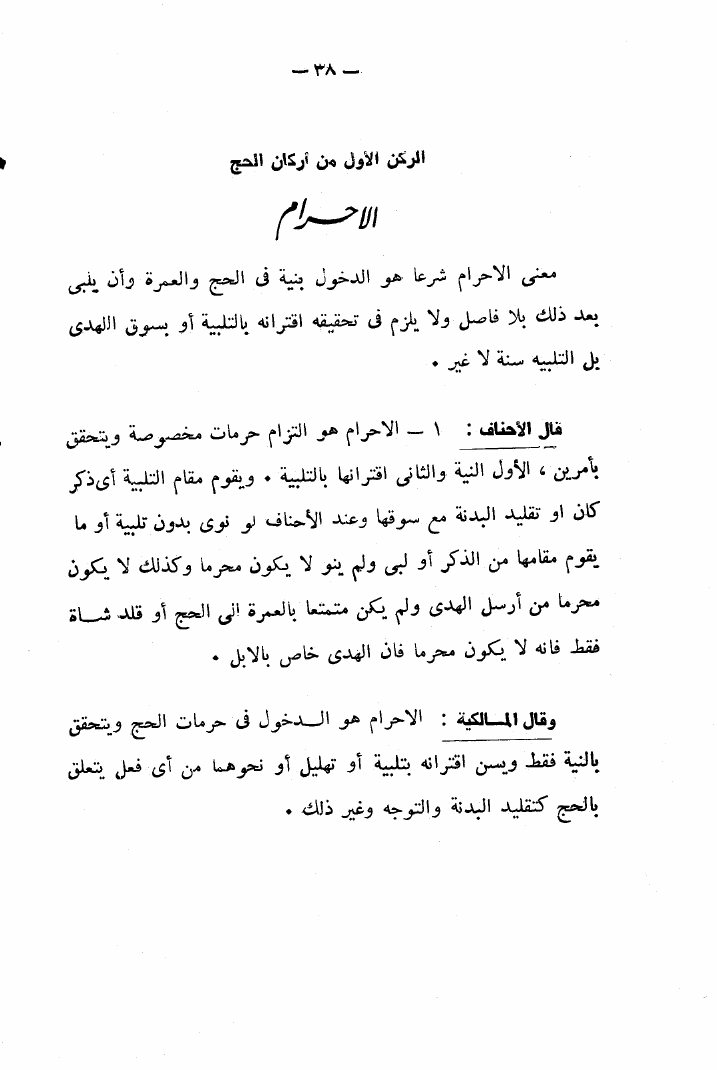 — ٣٨ —
الركن الأول من أركان الحج
الاحرام
معنى الاحرام شرعا هو الدخول بنية فى الحج والعمرة وأن يلبى
بعد ذلك بلا فاصل ولا يلزم فى تحقيقه اقترانه بالتلبية أو بسوق الهدى
بل التلبيه سنة لا غير .
قال الأحناف : ١ — الاحرام هو التزام حرمات مخصوصة ويتحقق
بأمرين ، الأول النية والثانى اقترانها بالتلبية . ويقوم مقام التلبية أى ذكر
كان او تقليد البدنة مع سوقها وعند الأحناف لو نوى بدون تلبية أو ما
يقوم مقامها من الذكر أو لبى ولم ينو لا يكون محرما وكذلك لا يكون
محرما من أرسل الهدى ولم يكن متمتعا بالعمرة الى الحج أو قلد شاة
فقط فانه لا يكون محرما فان الهدى خاص بالابل .
وقال المالكية : الاحرام هو الدخول فى حرمات الحج ويتحقق
بالنية فقط ويسن اقترانه بتلبية أو تهليل أو نحوهما من أى فعل يتعلق
بالحج كتقليد البدنة والتوجه وغير ذلك .